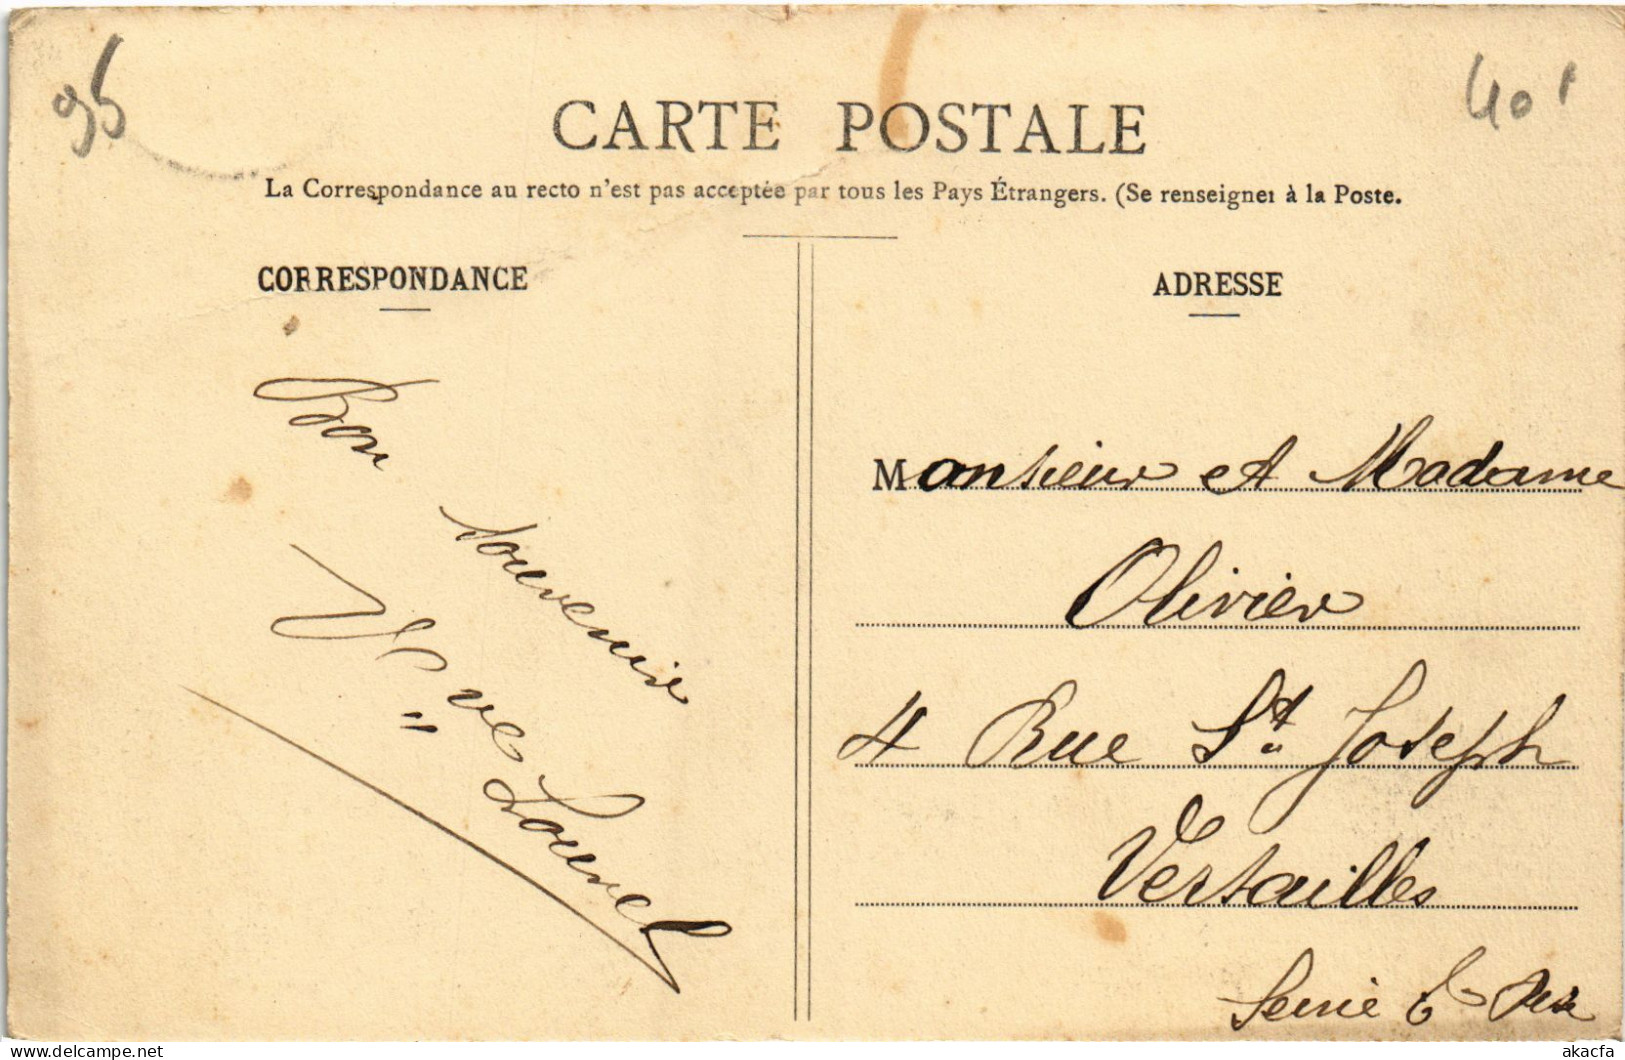 95
40f
CARTE POSTALE
La Correspondance au recto n'est pas acceptée par tous les Pays Étrangers. (Se renseigner à la Poste.
CORRESPONDANCE
Bon
souvenir
Vve Louvel
ADRESSE
Monsieur et Madame
Olivier
4 Rue St Joseph
Versailles
Seine &
delcampe.net
akacfa